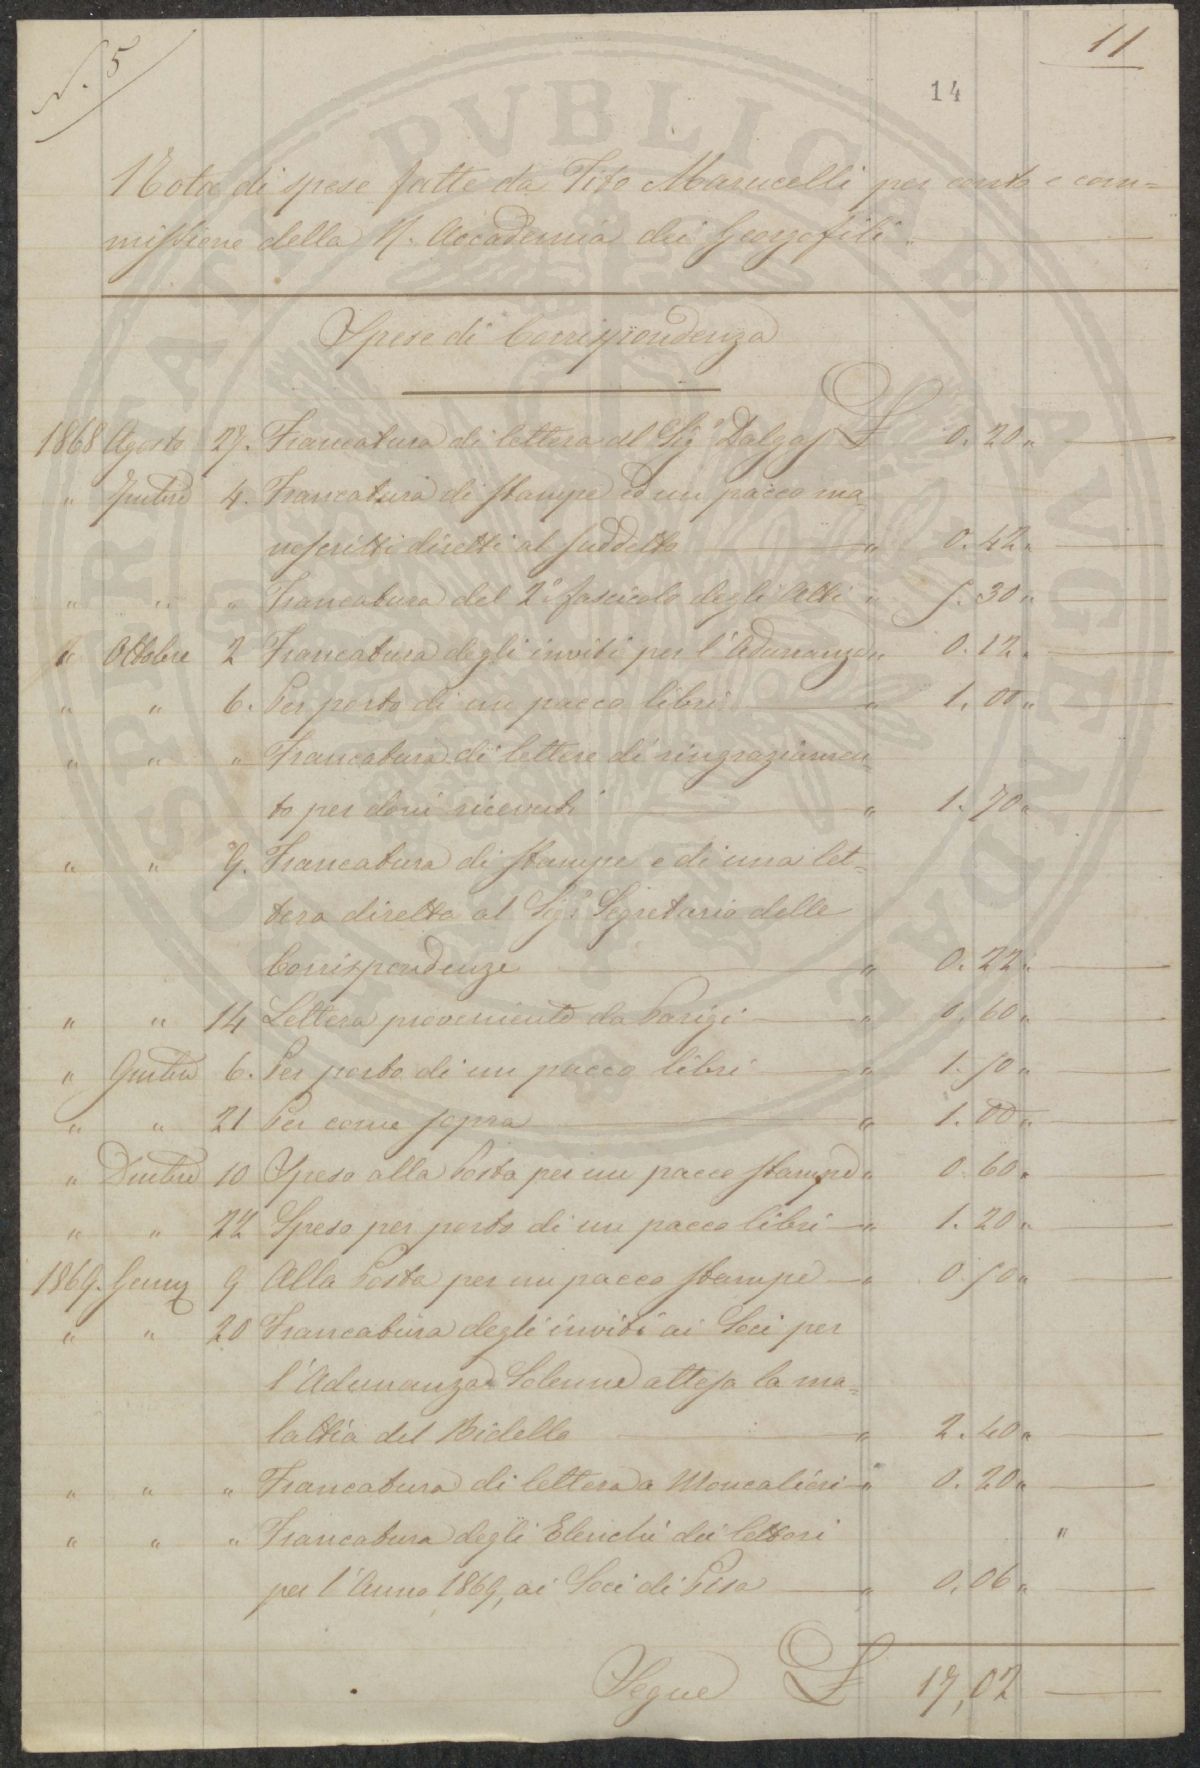 N. 5
11
14
Nota di spese fatte da Tito Marucelli per conto e com=
missione della R. Accademia dei Georgofili.
Spese di Corrispondenza
1868 Agosto 27. Francatura di lettera al Sigr Dalgas £ 0. 20 "
" 7mbre 4. Francatura di stampe ed un pacco ma=
noscritti diretti al suddetto " 0. 42 "
" " " Francatura del 2° fascicolo degli Atti " 5. 30 "
" Ottobre 2 Francatura degli inviti per l'Adunanza " 0. 12 "
" " 6. Per porto di un pacco libri " 1. 00 "
" " " Francatura di lettere di ringraziamen=
to per doni ricevuti " 1. 70 "
" " 9. Francatura di stampe e di una let=
tera diretta al Sigr Segretario delle
Corrispondenze " 0. 22 "
" " 14 Lettera proveniente da Parigi " 0. 60 "
" 9mbre 6. Per porto di un pacco libri " 1. 50 "
" " 21 Per come sopra " 1. 00 "
" Dmbre 10 Spesa alla Posta per un pacco stampe " 0. 60 "
" " 22 Spesa per porto di un pacco libri " 1. 20 "
1869. 9 Alla Posta per un pacco stampe " 0. 50 "
" " 20 Francatura degli inviti ai Soci per
l'Adunanza Solenne attesa la ma=
lattia del Bidello " 2. 40 "
" " " Francatura di lettera a Moncalieri " 0. 20 "
" " " Francatura degli Elenchi dei lettori "
per l'Anno 1869, ai Soci di Pisa " 0. 06 "
Segue £ 17,02
PROSPERITATI PVBLICAE AVGENDAE